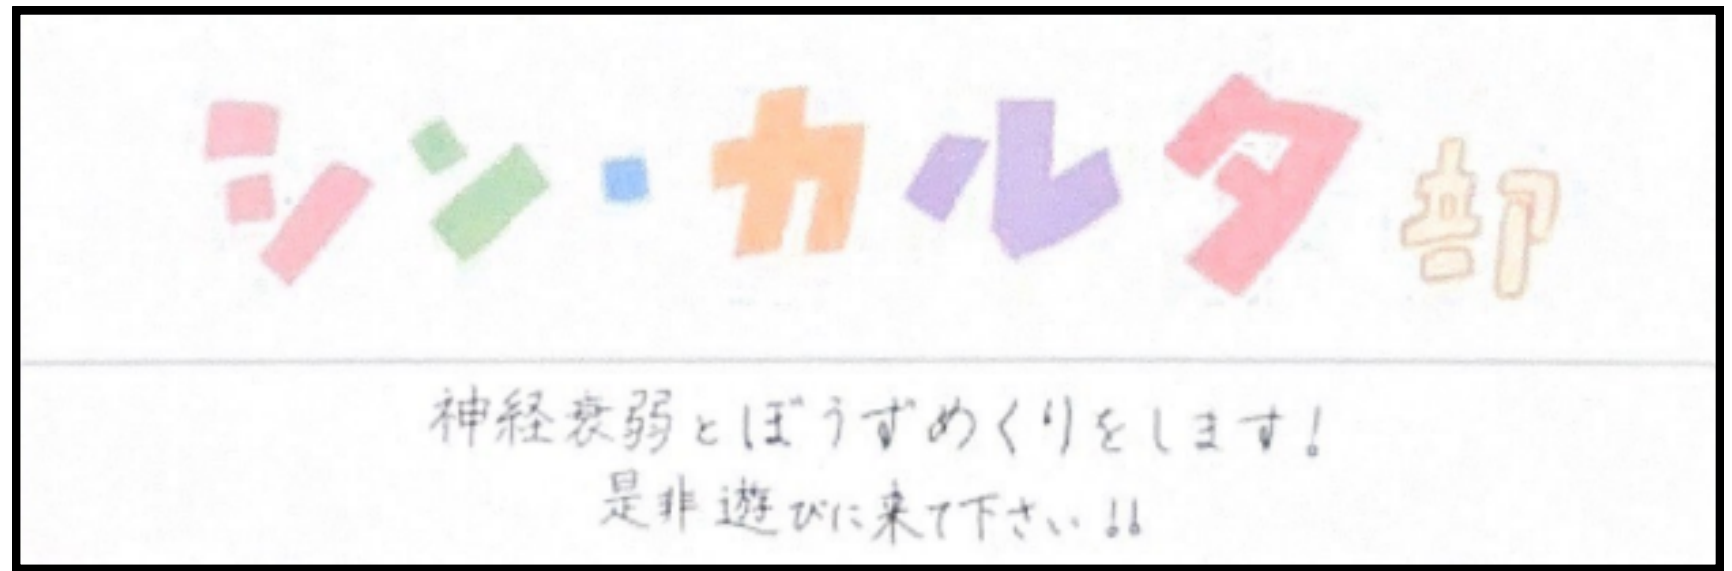 シン・カルタ部
神経衰弱とぼうずめくりをします!
是非遊びに来て下さい!!